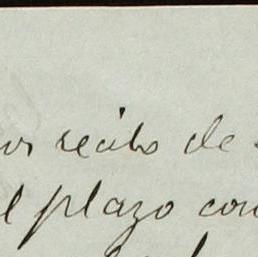 recibo de
l plazo con